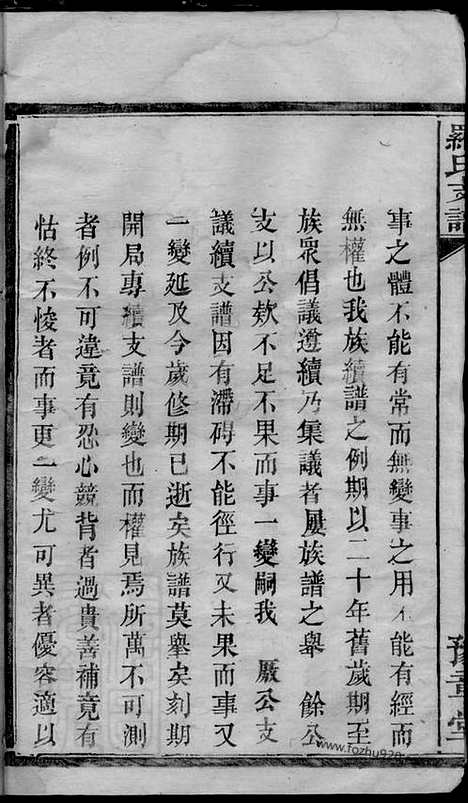 羅氏支譜
豫章堂
事之體不能有常而無變事之用不能有經而
無權也我族續譜之例期以二十年舊歲期至
族眾倡議遵續乃集議者屢族譜之舉 餘公
支以公欵不足不果而事一變嗣我 厥公支
議續支譜因有滯碍不能徑行又未果而事又
一變延及今歲修期已逝矣族譜莫舉矣刻期
開局專續支譜則變也而權見焉所萬不可測
者例不可違竟有忍心競背者過貴善補竟有
怙終不悛者而事更一變尤可異者優容適以
www.fozhu920.com